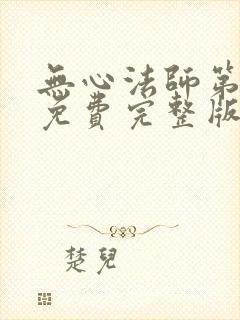 無心法師第
免費完整版
楚兒